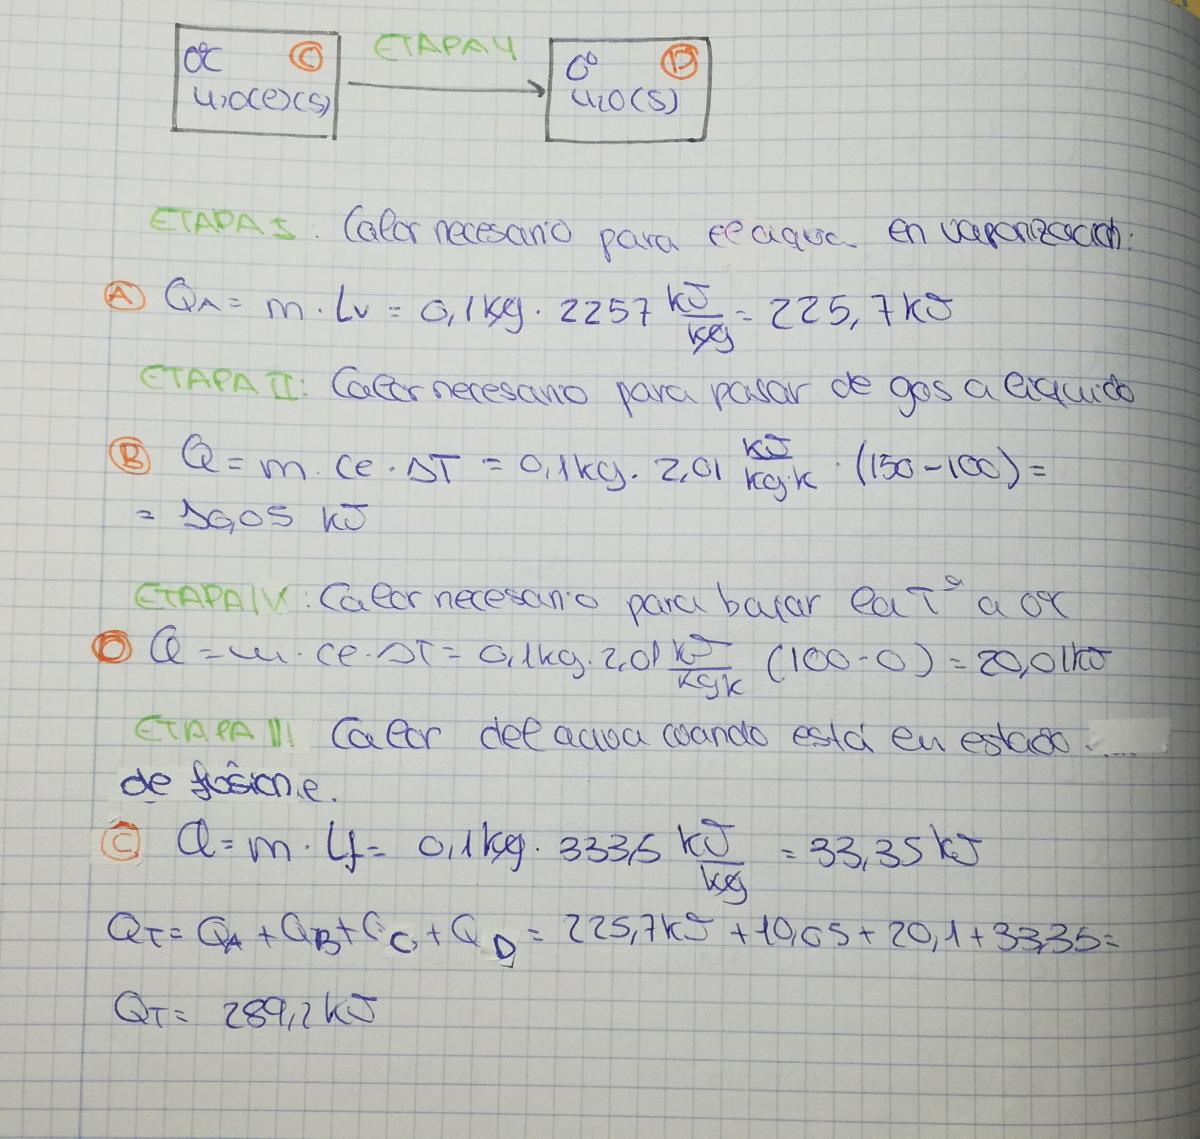 0ºC C ETAPA 4 0º D
H2O(l)(s) H2O(s)
ETAPA I: Calor necesario para el agua en vaporización:
A QA = m · Lv = 0,1 kg · 2257 kJ/kg = 225,7 kJ
ETAPA II: Calor necesario para pasar de gas a líquido
B Q = m · ce · ΔT = 0,1 kg · 2,01 kJ/kg·K · (150-100) =
= 10,05 kJ
ETAPA IV: Calor necesario para bajar la Tª a 0ºC
D Q = m · ce · ΔT = 0,1 kg · 2,01 kJ/kg K (100-0) = 20,01 kJ
ETAPA III: Calor del agua cuando está en estado
de fusion.e.
C Q = m · Lf = 0,1 kg · 333,5 kJ/kg = 33,35 kJ
QT = QA + QB + QC + QD = 225,7 kJ + 10,05 + 20,1 + 33,35 =
QT = 289,2 kJ